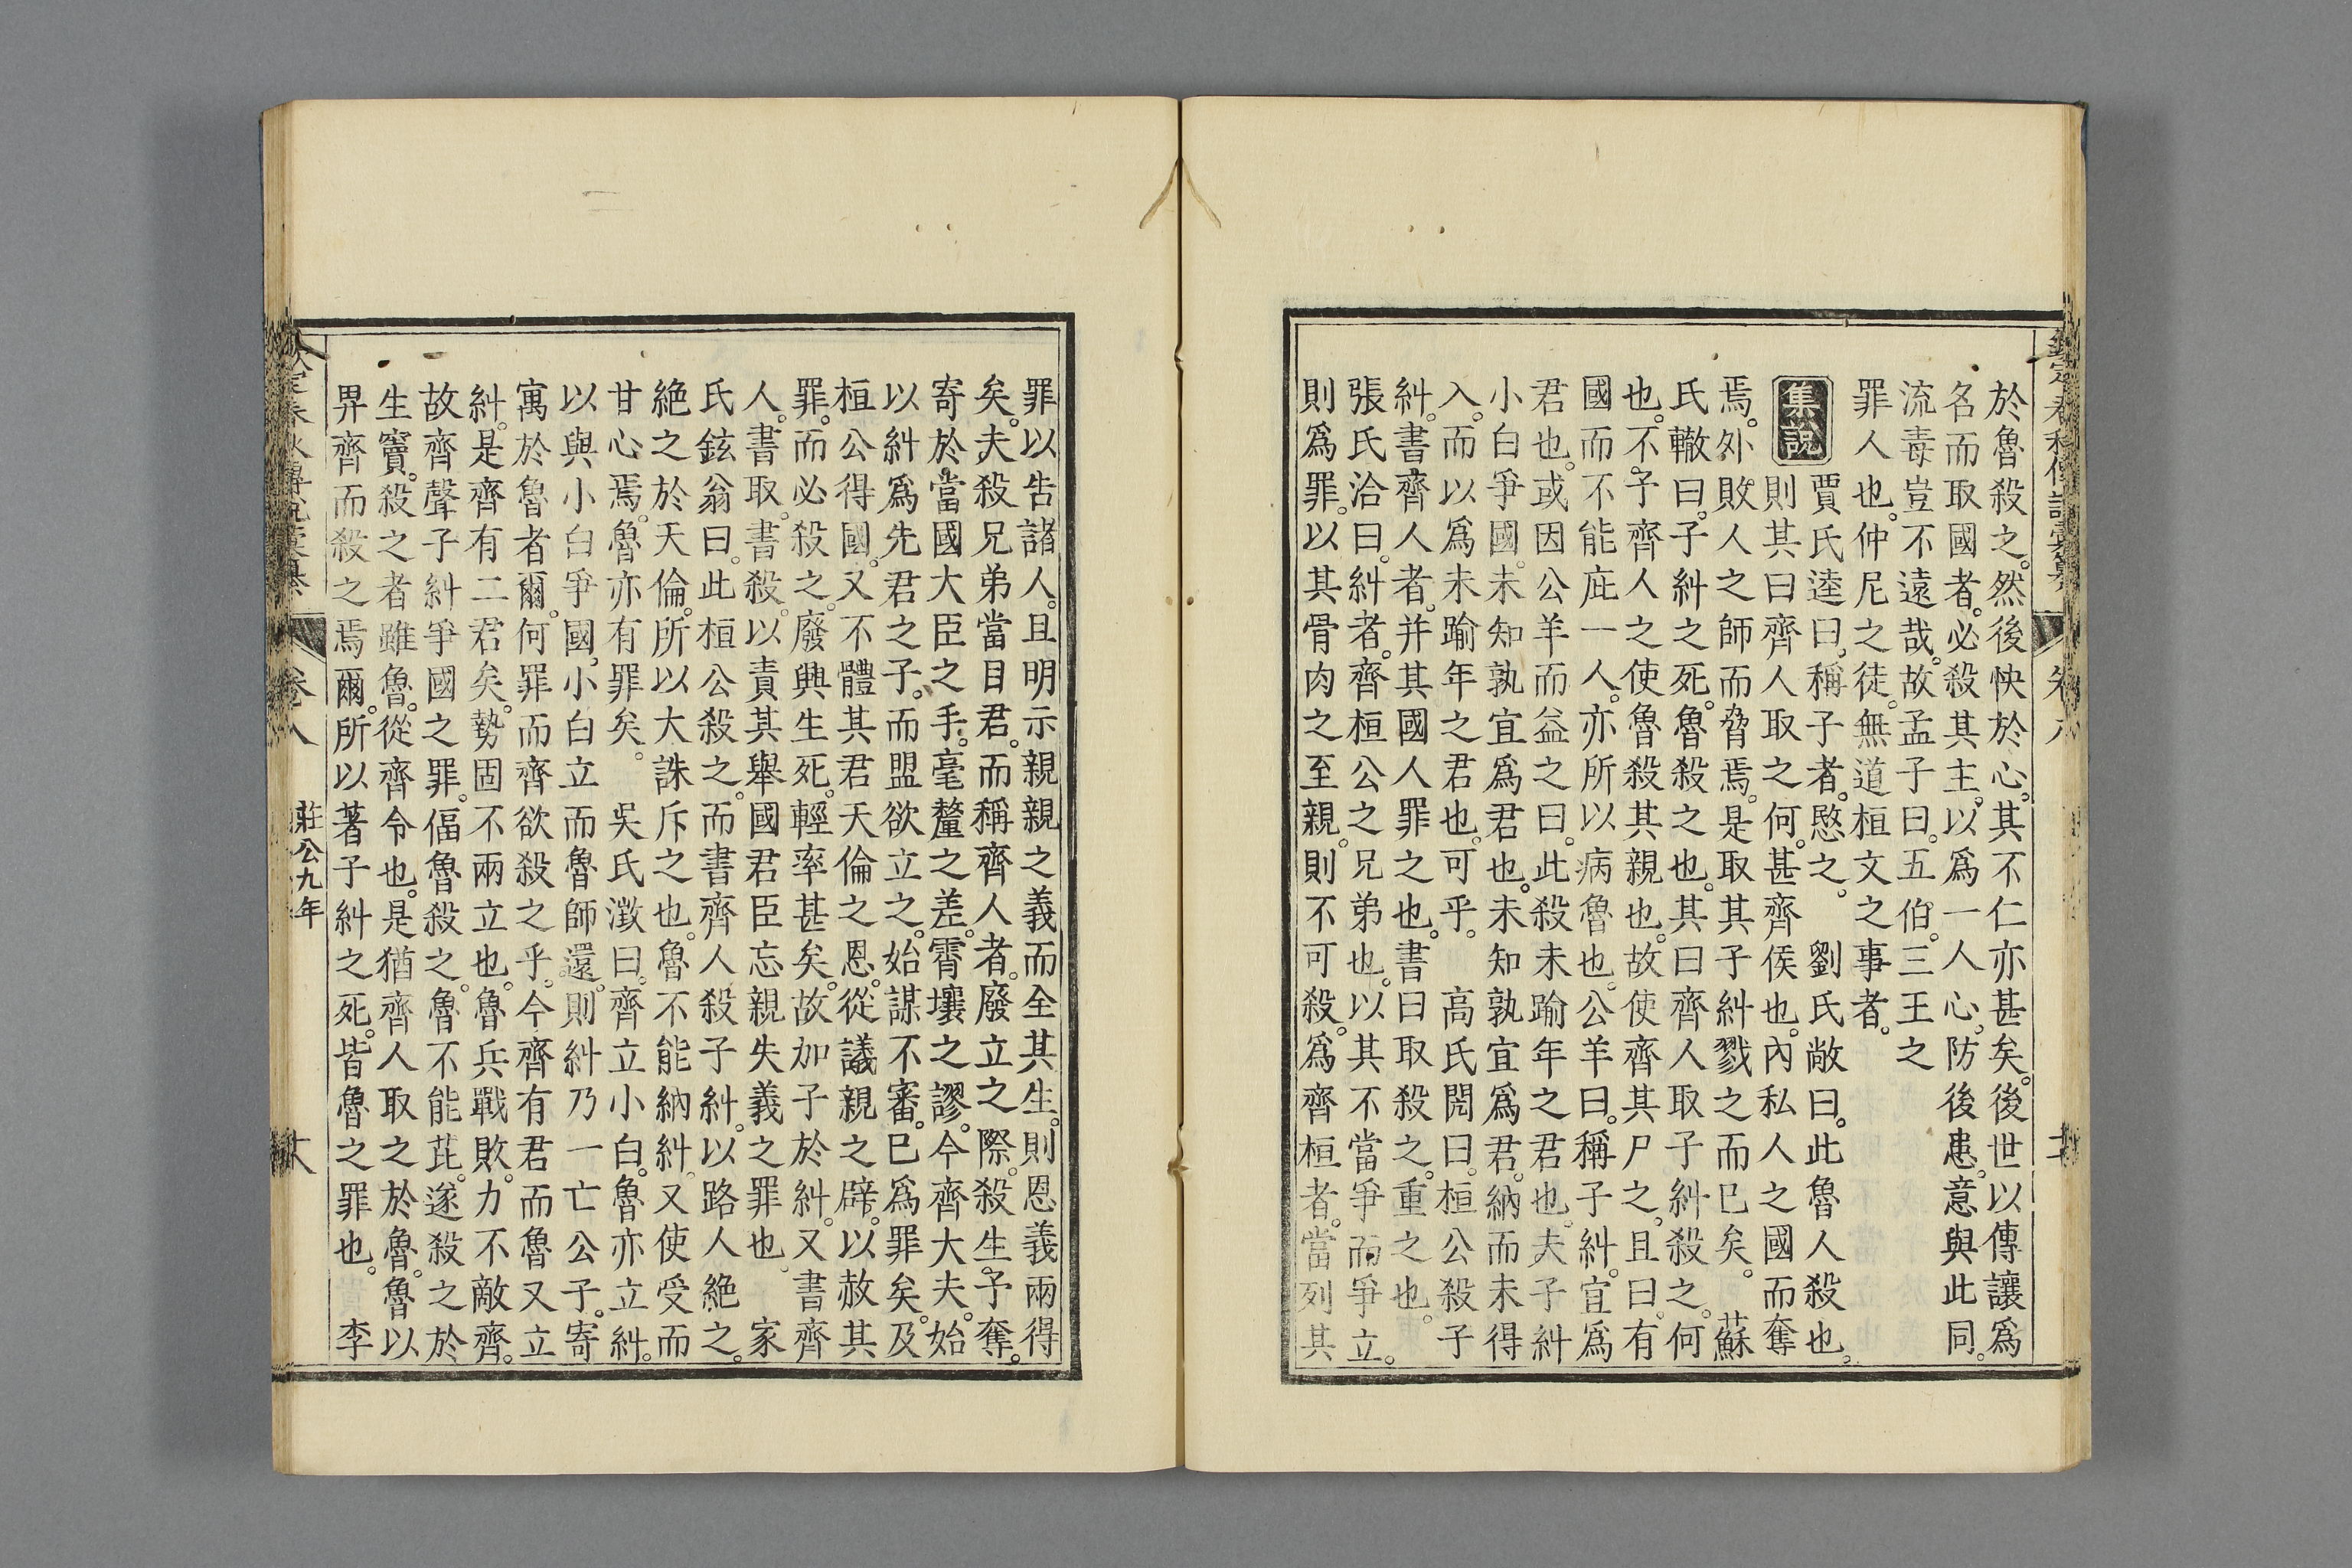 於魯殺之。然後快於心。其不仁亦甚矣。後世以傳讓爲
名而取國者。必殺其主。以爲一人心。防後患。意與此同。
流毒豈不遠哉。故孟子曰。五伯。三王之
罪人也。仲尼之徒。無道桓文之事者。
集說 賈氏逵曰。稱子者。愍之。 劉氏敞曰。此魯人殺也。
則其曰齊人取之何。甚齊侯也。內私人之國而奪
焉。外敗人之師而脅焉。是取其子糾戮之而已矣。 蘇
氏轍曰。子糾之死。魯殺之也。其曰齊人取子糾殺之。何
也。不予齊人之使魯殺其親也。故使齊其尸之。且曰。有
國而不能庇一人。亦所以病魯也。公羊曰。稱子糾。宜爲
君也。或因公羊而益之曰。此殺未踰年之君也。夫子糾
小白爭國。未知孰宜爲君也。未知孰宜爲君。納而未得
入。而以爲未踰年之君也。可乎。 高氏閌曰。桓公殺子
糾。書齊人者。并其國人罪之也。書曰取殺之。重之也。
張氏洽曰。糾者。齊桓公之兄弟也。以其不當爭而爭立。
則爲罪。以其骨肉之至親。則不可殺。爲齊桓者。當列其
罪以告諸人。且明示親親之義而全其生。則恩義兩得
矣。夫殺兄弟當目君。而稱齊人者。廢立之際。殺生予奪。
寄於當國大臣之手。毫釐之差。霄壤之謬。今齊大夫。始
以糾爲先君之子。而盟欲立之。始謀不審。已爲罪矣。及
桓公得國。又不體其君天倫之恩。從議親之辟。以赦其
罪。而必殺之。廢興生死。輕率甚矣。故加子於糾。又書齊
人。書取。書殺。以責其舉國君臣忘親失義之罪也。 家
氏鉉翁曰。此桓公殺之。而書齊人殺子糾。以路人絶之。
絶之於天倫。所以大誅斥之也。魯不能納糾。又使受而
甘心焉。魯亦有罪矣。 吳氏澂曰。齊立小白。魯亦立糾。
以與小白爭國。小白立而魯師還。則糾乃一亡公子。寄
寓於魯者爾。何罪而齊欲殺之乎。今齊有君而魯又立
糾。是齊有二君矣。勢固不兩立也。魯兵戰敗。力不敵齊。
故齊聲子糾爭國之罪。偪魯殺之。魯不能芘。遂殺之於
生竇。殺之者雖魯。從齊令也。是猶齊人取之於魯。魯以
畀齊而殺之焉爾。所以著子糾之死。皆魯之罪也。 李
卷八 莊公九年